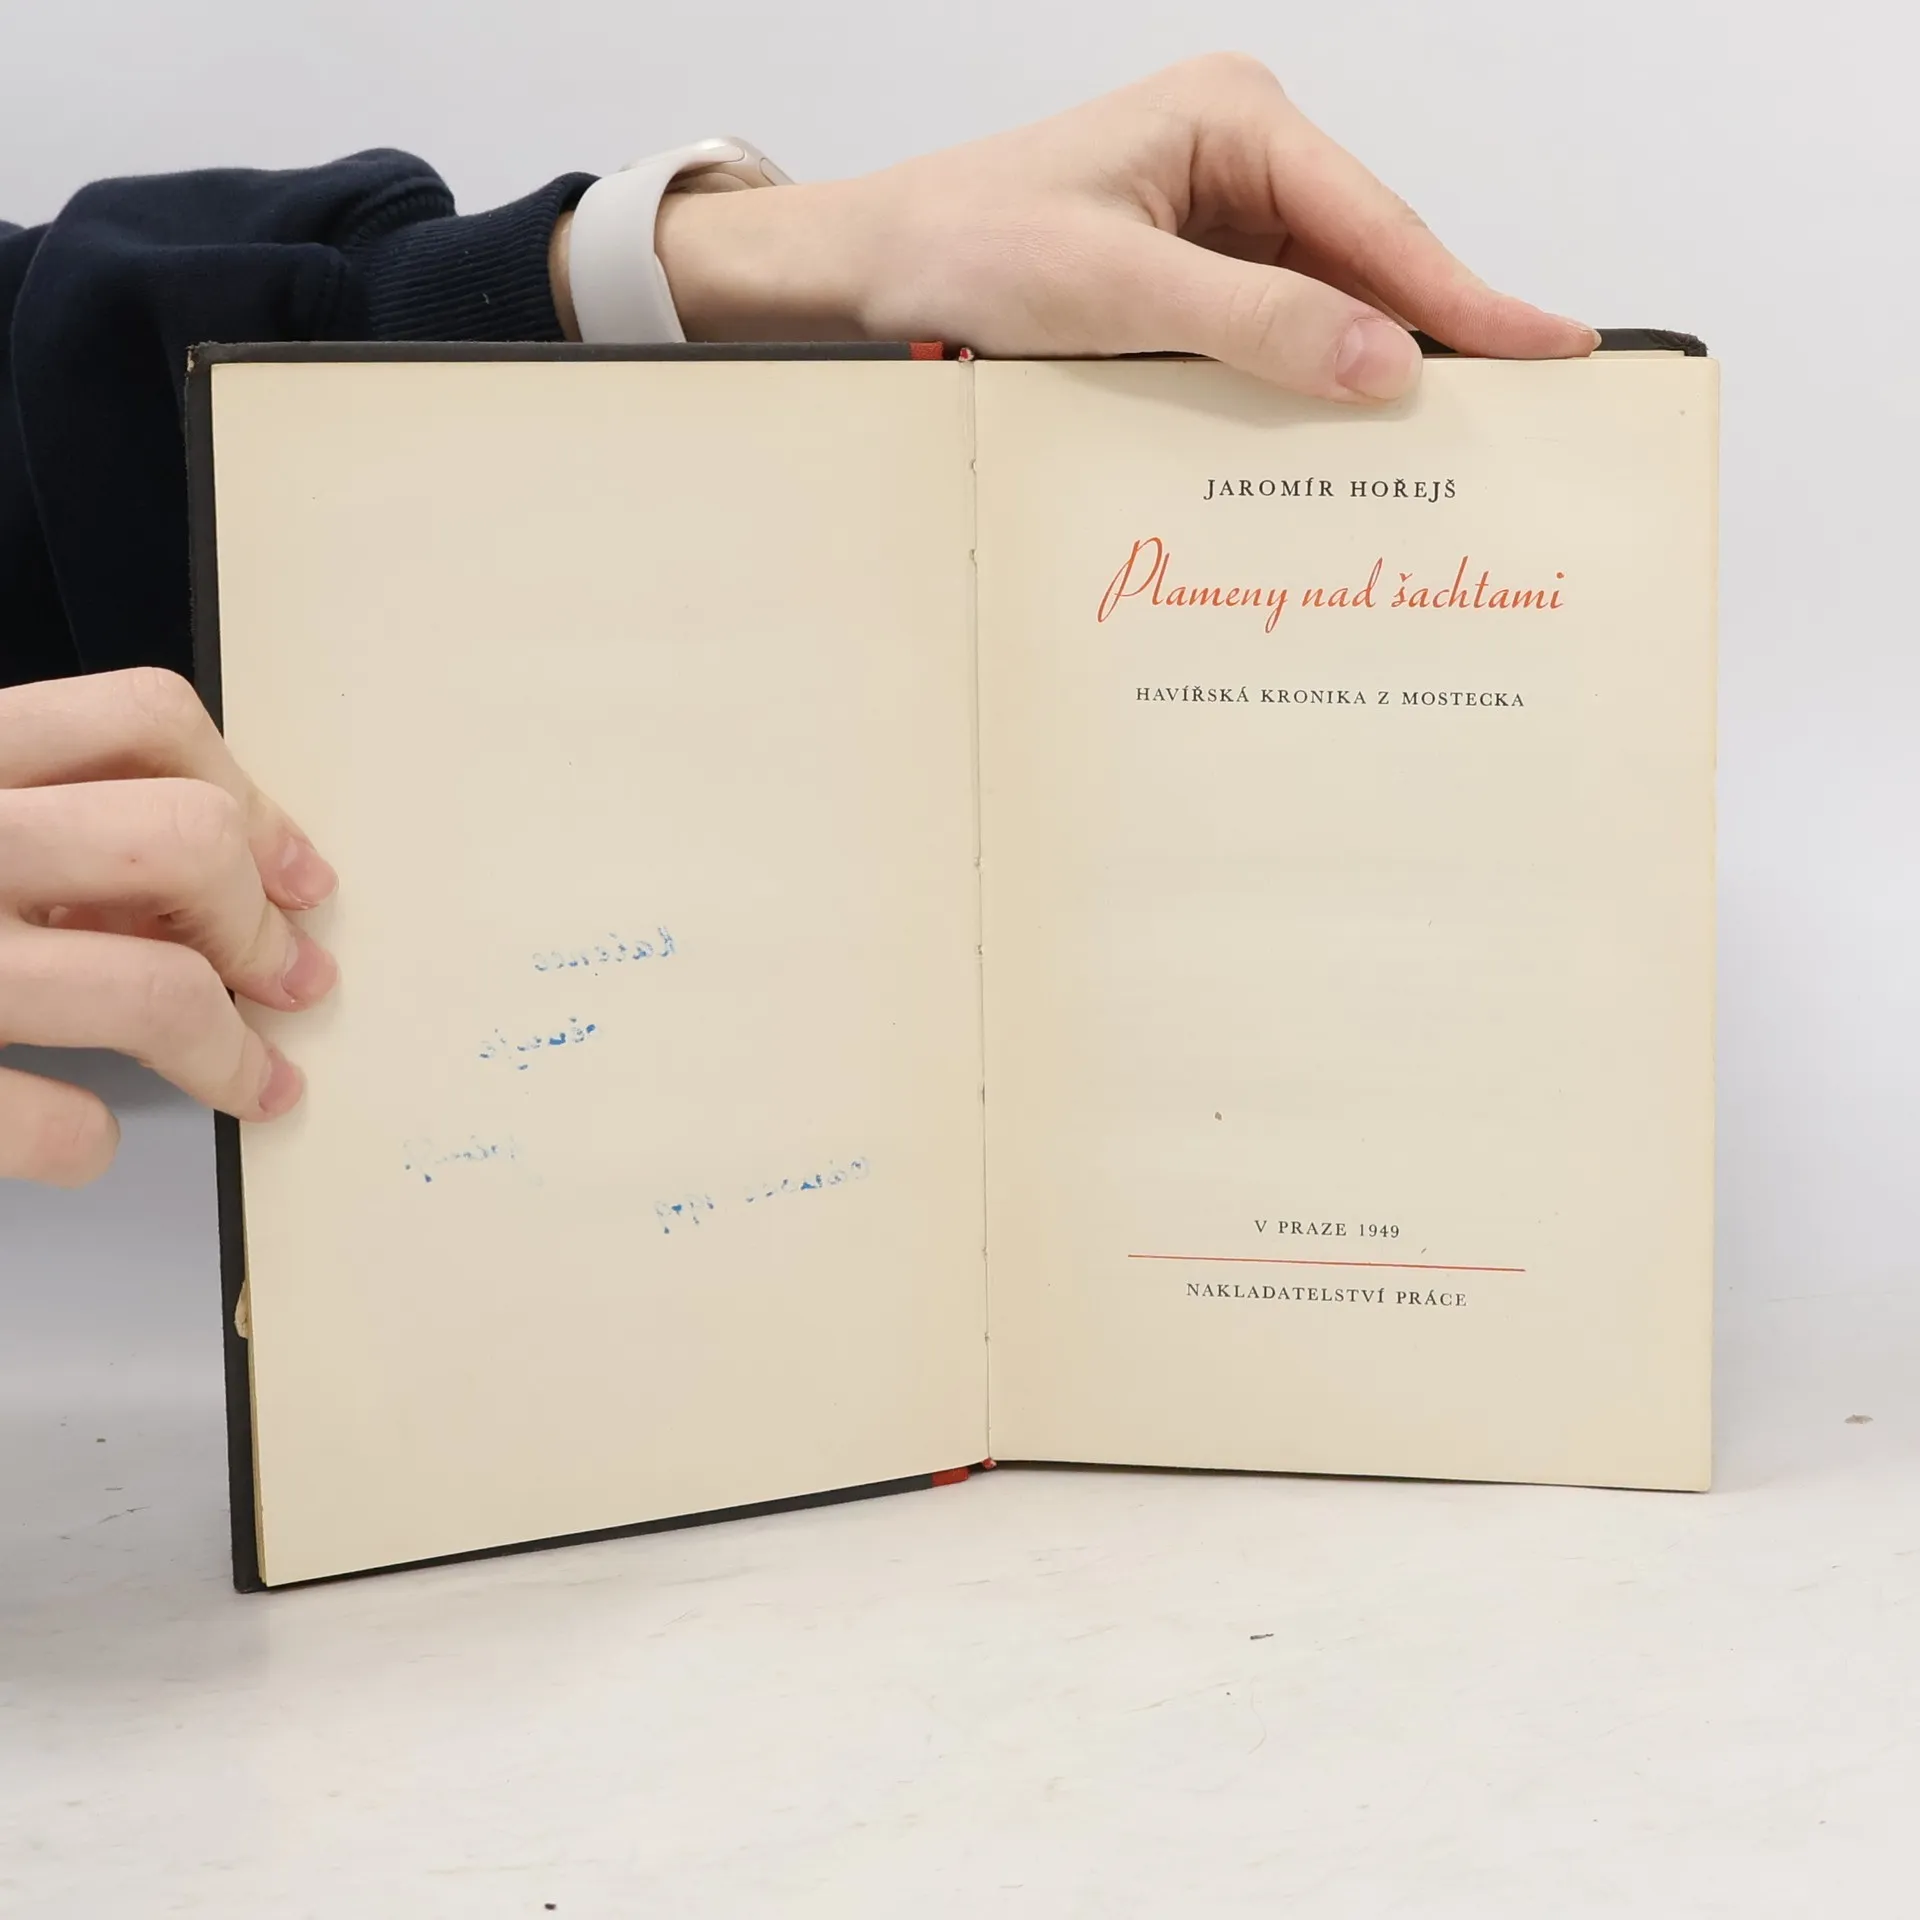 JAROMÍR HOŘEJŠ
Plameny nad šachtami
HAVÍŘSKÁ KRONIKA Z MOSTECKA
V PRAZE 1949
NAKLADATELSTVÍ PRÁCE